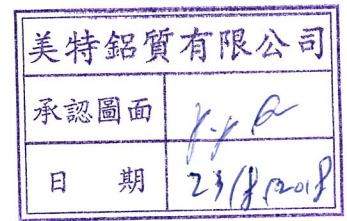 美特鋁質有限公司
承認圖面
日 期 23/8/2018